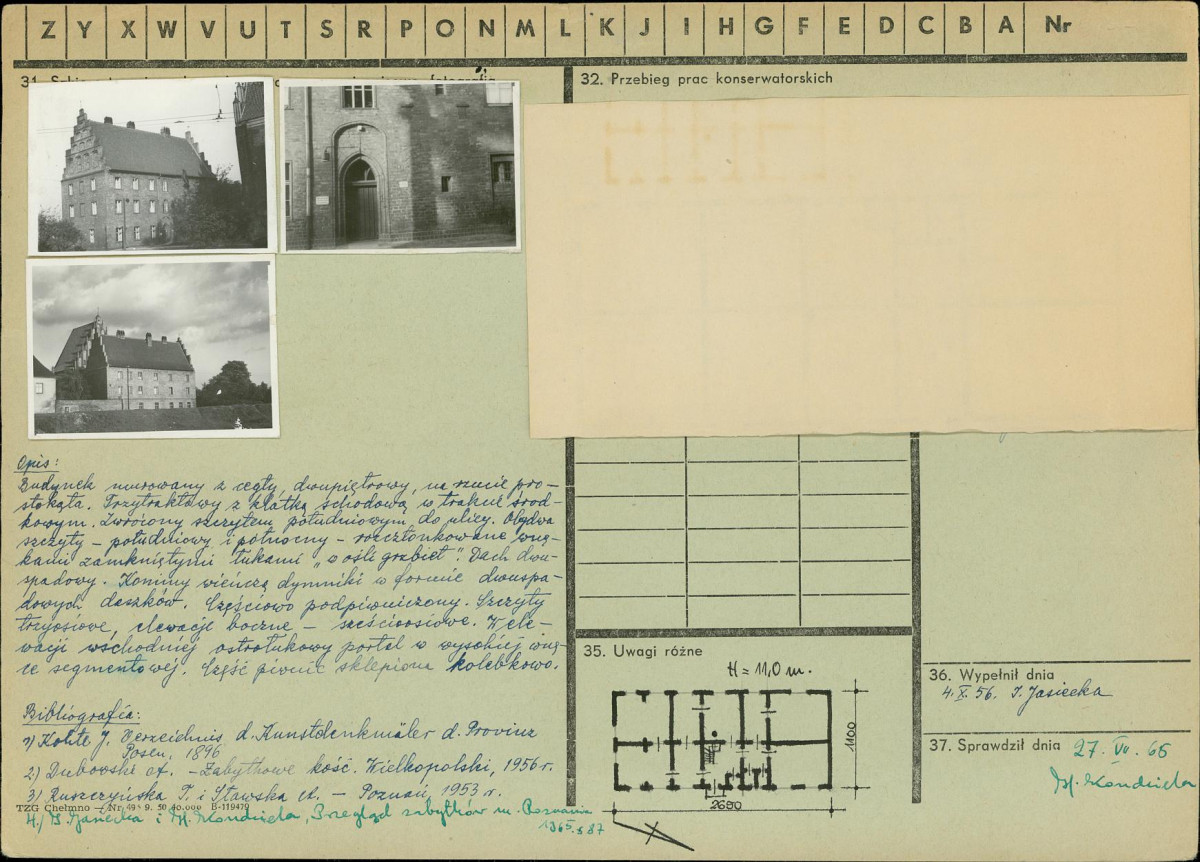 Z Y X W V U T S R P O N M L K J I H G F E D C B A Nr
31.
32. Przebieg prac konserwatorskich
Opis:
Budynek murowany z cegły, dwupiętrowy, na rzucie pro-
stokąta. Trzytraktowy z klatką schodową w trakcie środ-
kowym. Zwrócony szczytem południowym do ulicy. Obydwa
szczyty – południowy i północny – rozczłonkowane wnę-
kami zamkniętymi łukami "w ośli grzbiet". Dach dwu-
spadowy. Kominy wieńczą dymniki w formie dwuspa-
dowych daszków. Częściowo podpiwniczony. Szczyty
trzyosiowe, elewacje boczne – sześcioosiowe. W ele-
wacji wschodniej ostrołukowy portal w wysokiej wnę-
ce segmentowej. Część piwnic sklepiona kolebkowo.
Bibliografia:
1) Kohte J. Verzeichnis d. Kunstdenkmäler d. Provinz
Posen, 1896
2) Dubowski A. – Zabytkowe kość. Wielkopolski, 1956 r.
3) Ruszczyńska T. i Sławska A. – Poznań, 1953 r.
TZG Chełmno – Nr 9. 50 40.000 B-119470
4.) I. Jasiecka i M. Kondziela, Przegląd zabytków m. Poznania
1965. s 87
35. Uwagi różne
H = 11,0 m.
1100
2680
36. Wypełnił dnia
4. X. 56. I. Jasiecka
37. Sprawdził dnia 27. VII. 65
M. Kondziela